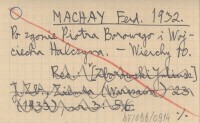 MACHAY Ferd. 1932.
Po zgonie Piotra Borowego i Woj-
ciecha Halczyna. – Wierchy 10.
Rec.: [Zborowski Juliusz]
Ziemia (Warszawa) 23
(1933) nr 3: 56.